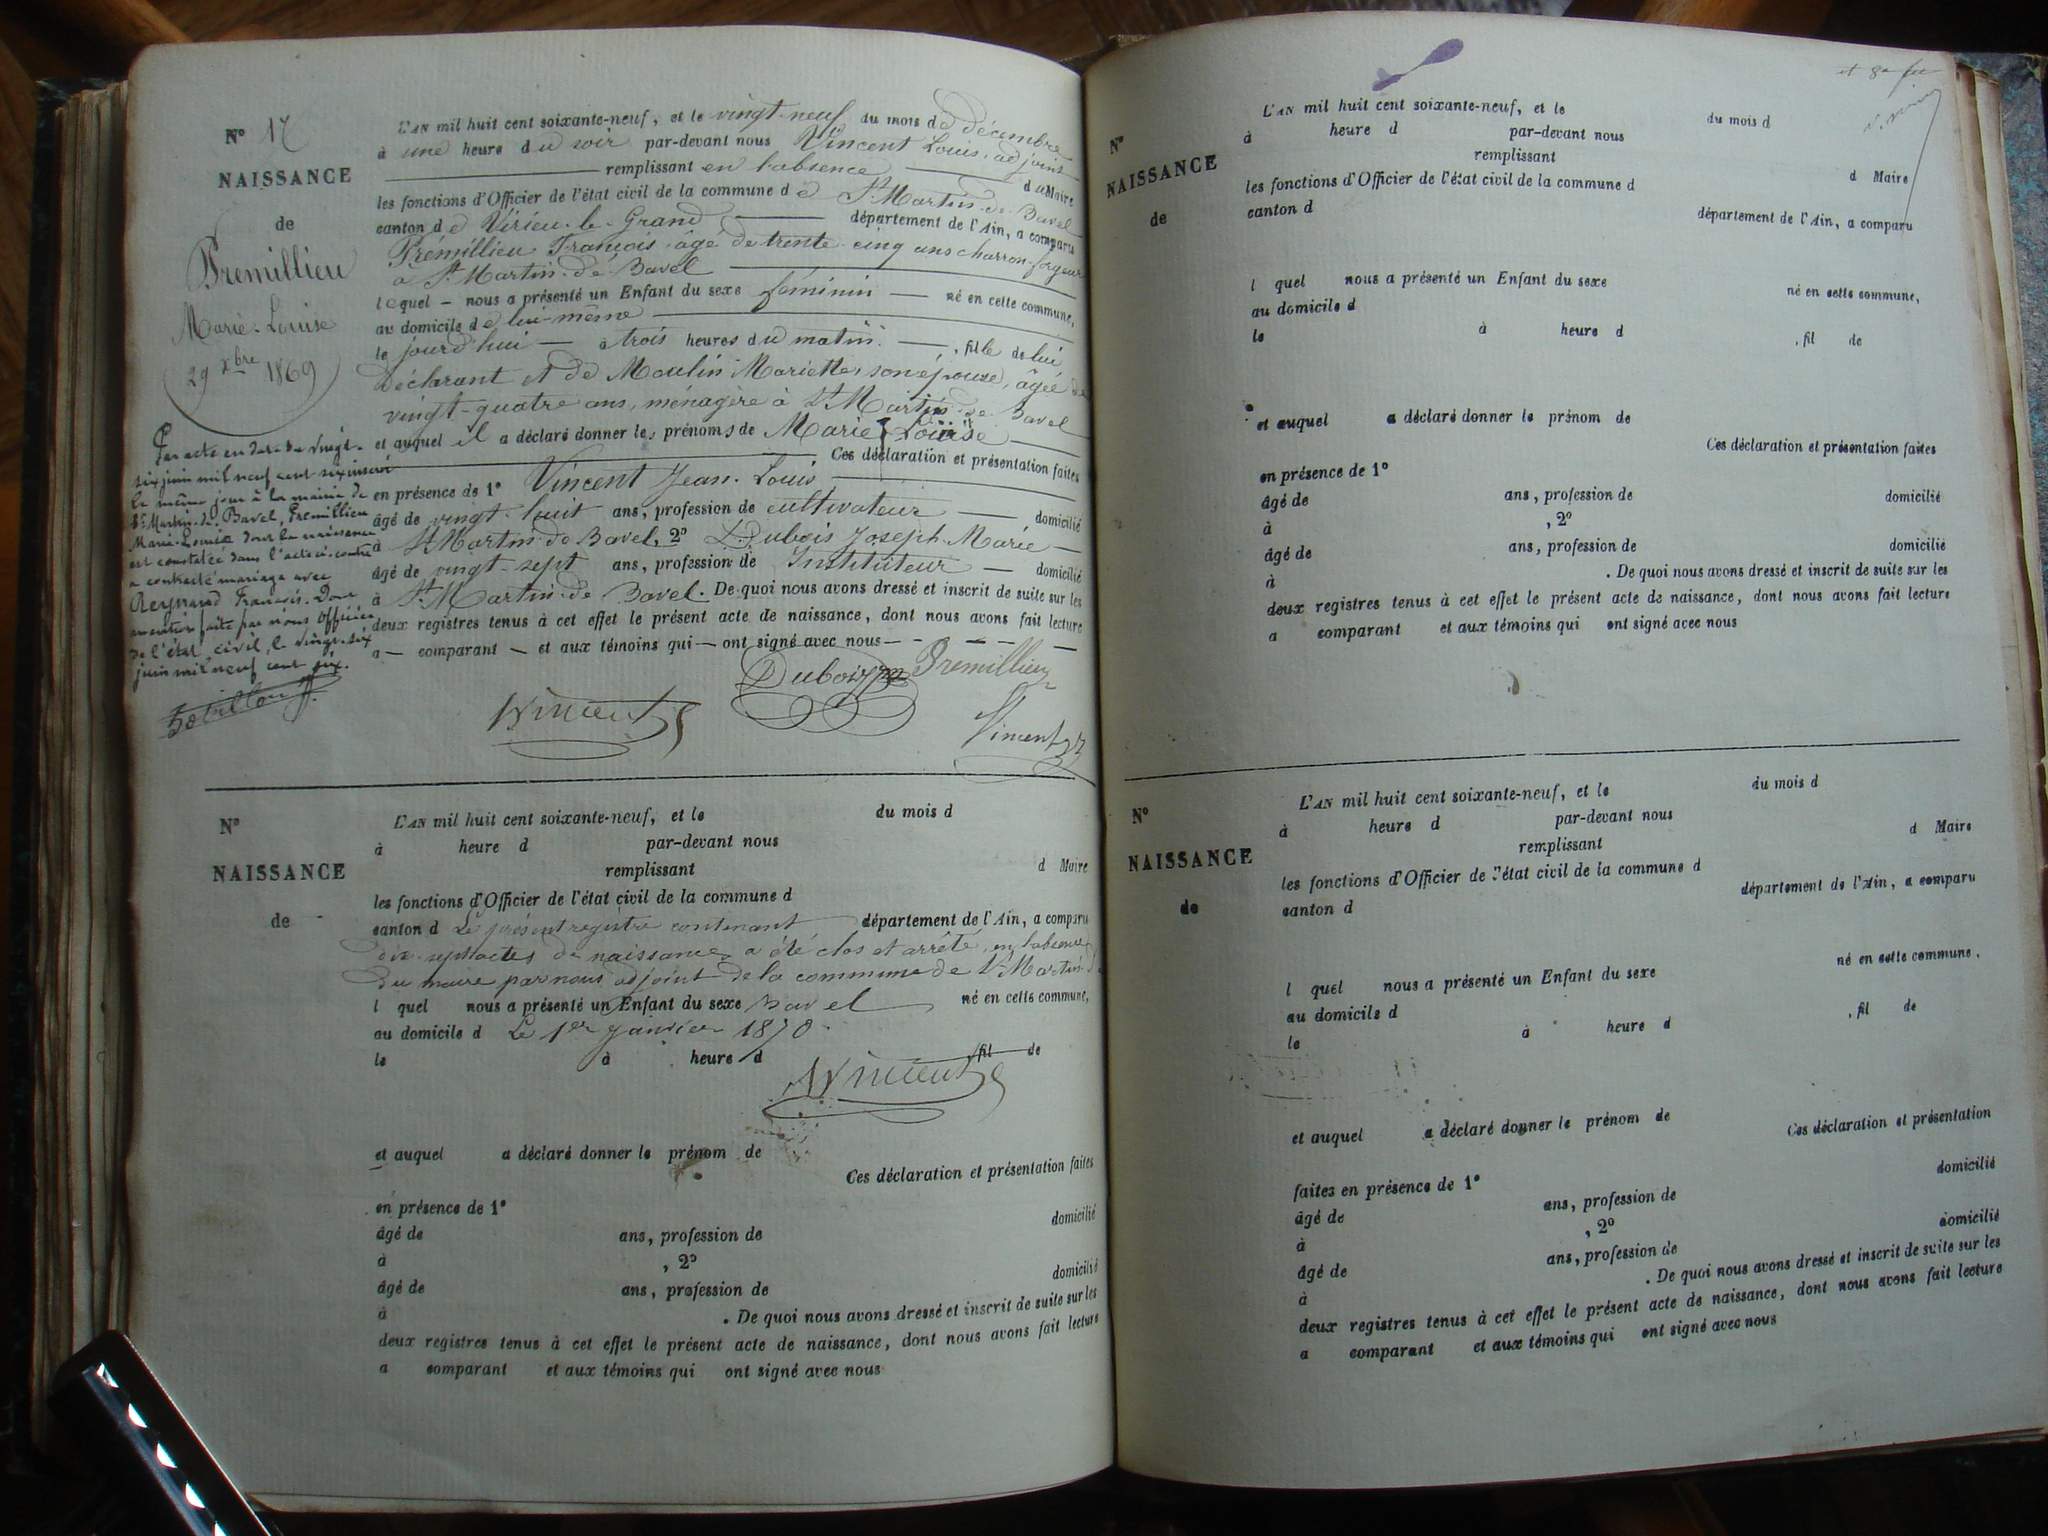 N° 17
NAISSANCE
de
Premillieu
Marie-Louise
29 Xbre 1869
L'AN mil huit cent soixante-neuf, et le vingt-neuf du mois de décembre
à une heure du soir par-devant nous Vincent Louis, adjoint
remplissant en l'absence du Maire
les fonctions d'Officier de l'état civil de la commune de St Martin-de-Bavel
canton de Virieu-le-Grand département de l'Ain, a comparu
Prémillieu François âgé de trente-cinq ans charron-forgeur
à St Martin-de-Bavel
lequel nous a présenté un Enfant du sexe féminin né en cette commune,
au domicile de lui-même
le jourd'hui à trois heures du matin, fille de lui
Déclarant et de Moulin Mariette, son épouse, âgée de
vingt-quatre ans, ménagère à St Martin-de-Bavel
et auquel il a déclaré donner les prénoms de Marie Louise
Ces déclaration et présentation faites
en présence de 1° Vincent Jean-Louis
âgé de vingt-huit ans, profession de cultivateur domicilié
à St Martin-de-Bavel, 2° Dubois Joseph-Marie
âgé de vingt-sept ans, profession de Instituteur domicilié
à St Martin-de-Bavel. De quoi nous avons dressé et inscrit de suite sur les
deux registres tenus à cet effet le présent acte de naissance, dont nous avons fait lecture
a comparant et aux témoins qui ont signé avec nous
Dubois Premillieu
Vincent
Vincent
Par acte en date du vingt-
six juin mil neuf cent six inscrit
le même jour à la mairie de
St Martin-de-Bavel, Premillieu
Marie-Louise dont la naissance
est constatée dans l'acte ci-contre
a contracté mariage avec
Reynaud François. Dont
mention faite par nous Officier
de l'état civil, le vingt-six
juin mil neuf cent six.
N°
NAISSANCE
de
L'AN mil huit cent soixante-neuf, et le du mois d
à heure d par-devant nous
remplissant d Maire
les fonctions d'Officier de l'état civil de la commune d
canton d Le présent registre contenant département de l'Ain, a comparu
dix-sept actes de naissances a été clos et arrêté, en l'absence
du maire par nous adjoint de la commune de St Martin-d
l quel nous a présenté un Enfant du sexe Bavel né en cette commune,
au domicile d Le 1er Janvier 1870
le à heure d fil de
Vincent
et auquel a déclaré donner le prénom de
Ces déclaration et présentation faites
en présence de 1°
âgé de ans, profession de domicilié
à , 2°
âgé de ans, profession de domicilié
à . De quoi nous avons dressé et inscrit de suite sur les
deux registres tenus à cet effet le présent acte de naissance, dont nous avons fait lecture
a comparant et aux témoins qui ont signé avec nous
N°
NAISSANCE
de
L'AN mil huit cent soixante-neuf, et le du mois d
à heure d par-devant nous
remplissant d Maire
les fonctions d'Officier de l'état civil de la commune d
canton d département de l'Ain, a comparu
l quel nous a présenté un Enfant du sexe né en cette commune,
au domicile d
le à heure d , fil de
et auquel a déclaré donner le prénom de
Ces déclaration et présentation faites
en présence de 1°
âgé de ans, profession de domicilié
à , 2°
âgé de ans, profession de domicilié
à . De quoi nous avons dressé et inscrit de suite sur les
deux registres tenus à cet effet le présent acte de naissance, dont nous avons fait lecture
a comparant et aux témoins qui ont signé avec nous
N°
NAISSANCE
de
L'AN mil huit cent soixante-neuf, et le du mois d
à heure d par-devant nous
remplissant d Maire
les fonctions d'Officier de l'état civil de la commune d
canton d département de l'Ain, a comparu
l quel nous a présenté un Enfant du sexe né en cette commune,
au domicile d
le à heure d , fil de
et auquel a déclaré donner le prénom de
Ces déclaration et présentation
faites en présence de 1°
âgé de ans, profession de domicilié
à , 2°
âgé de ans, profession de domicilié
à . De quoi nous avons dressé et inscrit de suite sur les
deux registres tenus à cet effet le présent acte de naissance, dont nous avons fait lecture
a comparant et aux témoins qui ont signé avec nous